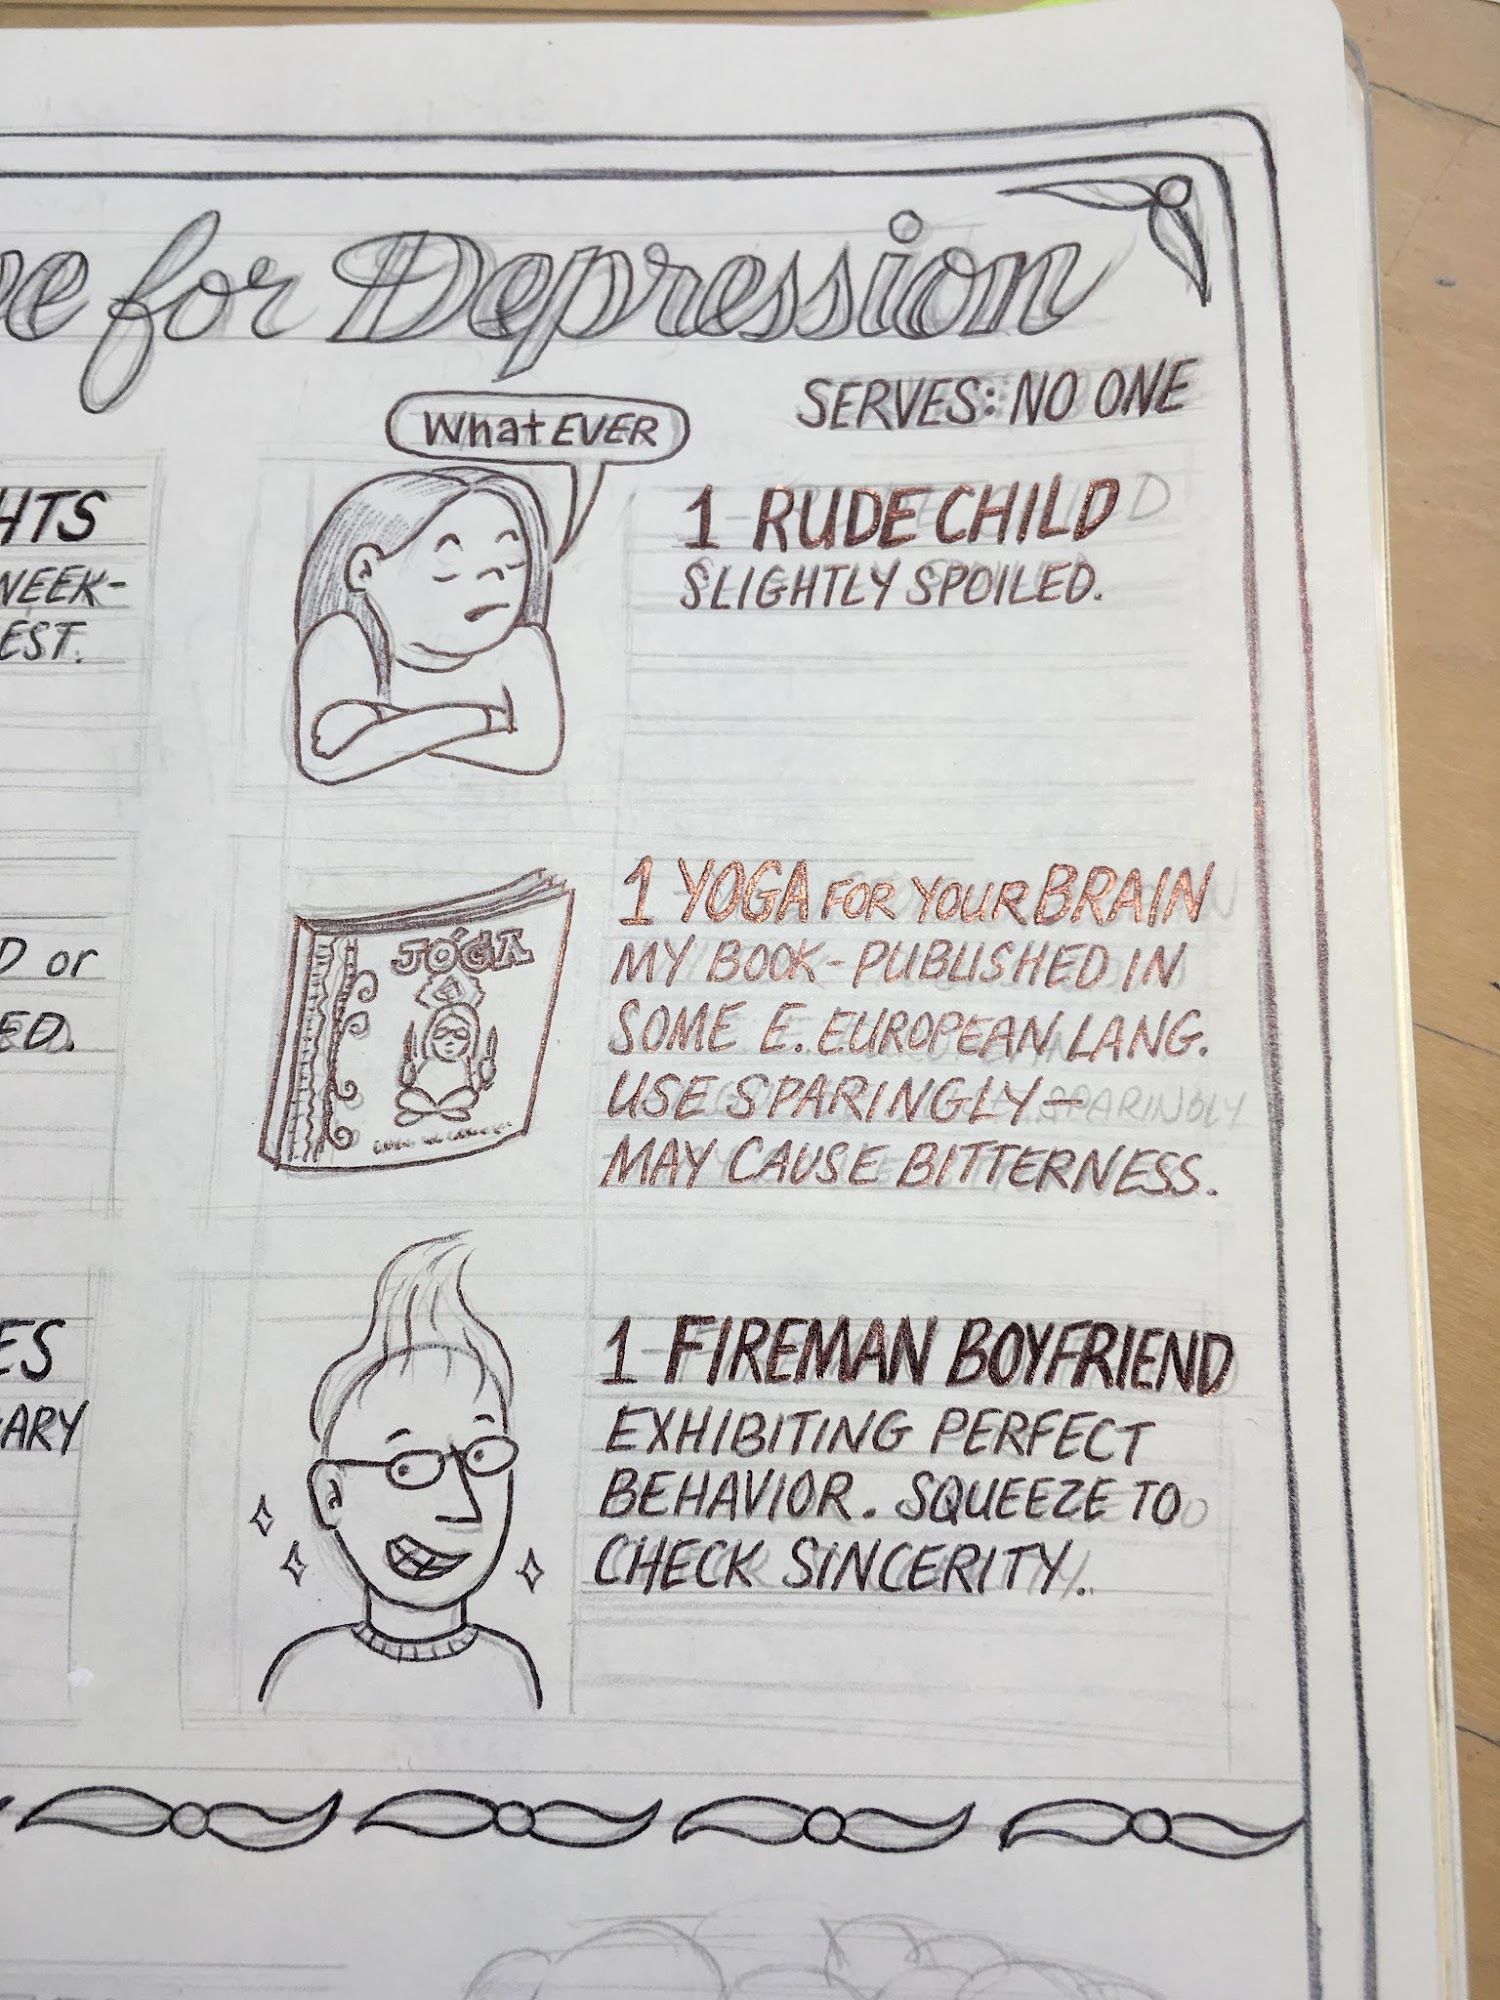 for Depression
SERVES: NO ONE
WhatEVER
1 RUDE CHILD
SLIGHTLY SPOILED.
HTS
WEEK-
EST.
1 YOGA FOR YOUR BRAIN
MY BOOK - PUBLISHED IN
SOME E. EUROPEAN LANG.
USE SPARINGLY —
MAY CAUSE BITTERNESS.
JÓGA
D or
ED.
1 FIREMAN BOYFRIEND
EXHIBITING PERFECT
BEHAVIOR. SQUEEZE TO
CHECK SINCERITY.
ES
ARY